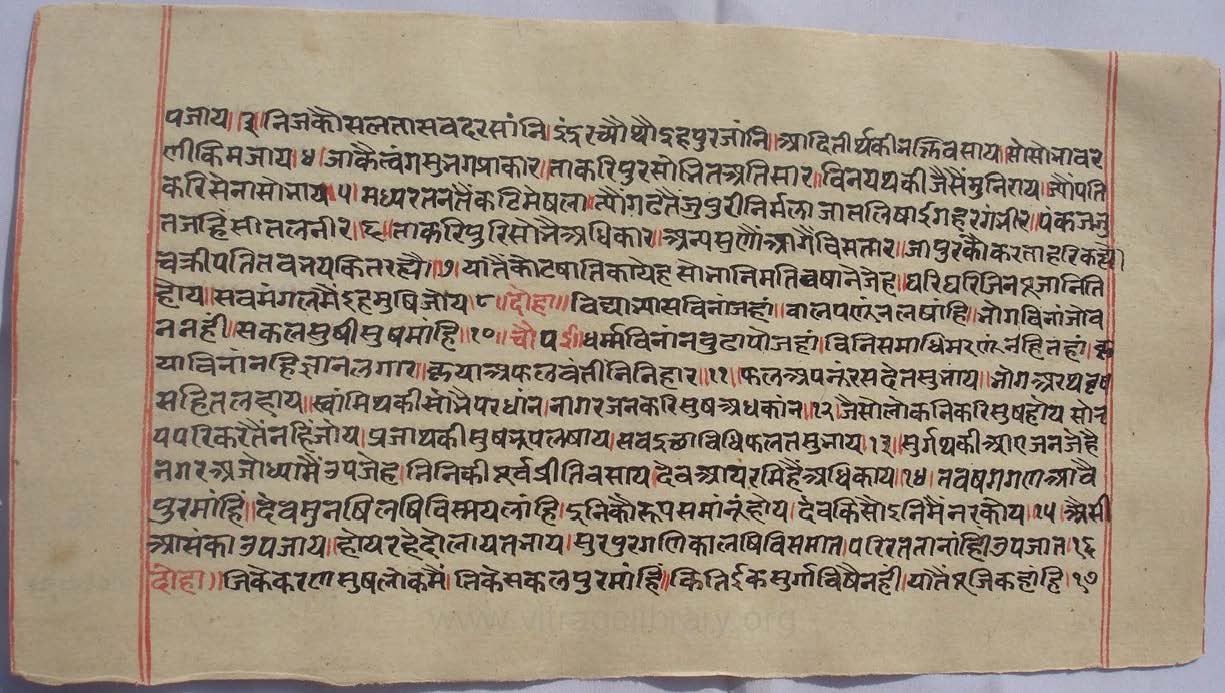 पजाय।३।निजकौसलतासवदरसांनि।इंद्ररच्यौथौइहपुरजांनि।आदितीर्थकीभक्तिवसाय।सोसोभावर
लीकिमजाय।४।जाकैत्वंगसुभगप्राकार।ताकरिपुरसोभितअतिसार॥विनयथकीजैसैंमुनिराय।ज्यौंपति
करिसेनासोभाय॥५।मध्यरतनतैंकटिमेषला।त्यौंगढतैंजुपुरीनिर्मला।जातलिषाईगहरगंभीर।पंकजजु
तजहिंसीतलनीर।६।ताकरिपुरिसोभैअधिकार।अन्यसुणौंआगैविसतार।जापुरकौकरताहरिकह्यौ
चक्रीपतितवनयकितरह्यौ।७।यातैंकोटषातिकायेह।सोभानिमति
होय॥सवमंगलमैंइहमुषिजोय।८।दोहा॥विद्याभ्यासविनांजहां।वालपणंनलषांहि।भोगविनांजोव
ननहीं।सकलसुषीसुषमांहि।१०।चौपई।धर्म्मविनांनवुढापौजहां।विनिसमाधिमरणनहितहां।
याविनांनहिज्ञानलगार।क्रयाअफलवंतीनिनिहार।११।फलअपनंरसदेतसुभाय।भोगअरथ
सहितलहाय।स्वांमिथकीसोभैपरधांन।नागरजनकरिसुषअधकांन।१२।जैसोलोकनिकरिसुषहोय
यपरिकरतैंनहिंजोय।प्रजाथकीसुषनृपलषाय।सवइछाविधिफलतसुभाय।१३।सुर्गथकीआएजनजेहै
नगरअजोध्यामैंउपजेह।तिनिकीपूर्वप्रीतिवसाय।देवआयंरमिहैंअधिकाय।१४।नवषगगणआवै
पुरमांहिं।देवमुनषिलषिविस्मयलांहि।इनिकौरूपसमांनंहोय।देवकिसौइनिमैंनरकोय।१५।असी
आसंकाउपजाय।होयरहेदोलायतभाय।सुरपुरगणिकालषिविसमात।परिरततानांहीउपजात।१६
दोहा॥जिकेकरणसुषलोकमैं।तिकेसकलपुरमांहिं।कितिईकसुर्गाविषैनहीं।यातैंपूजिकहांहि।१७
www.vitragelibrary.org